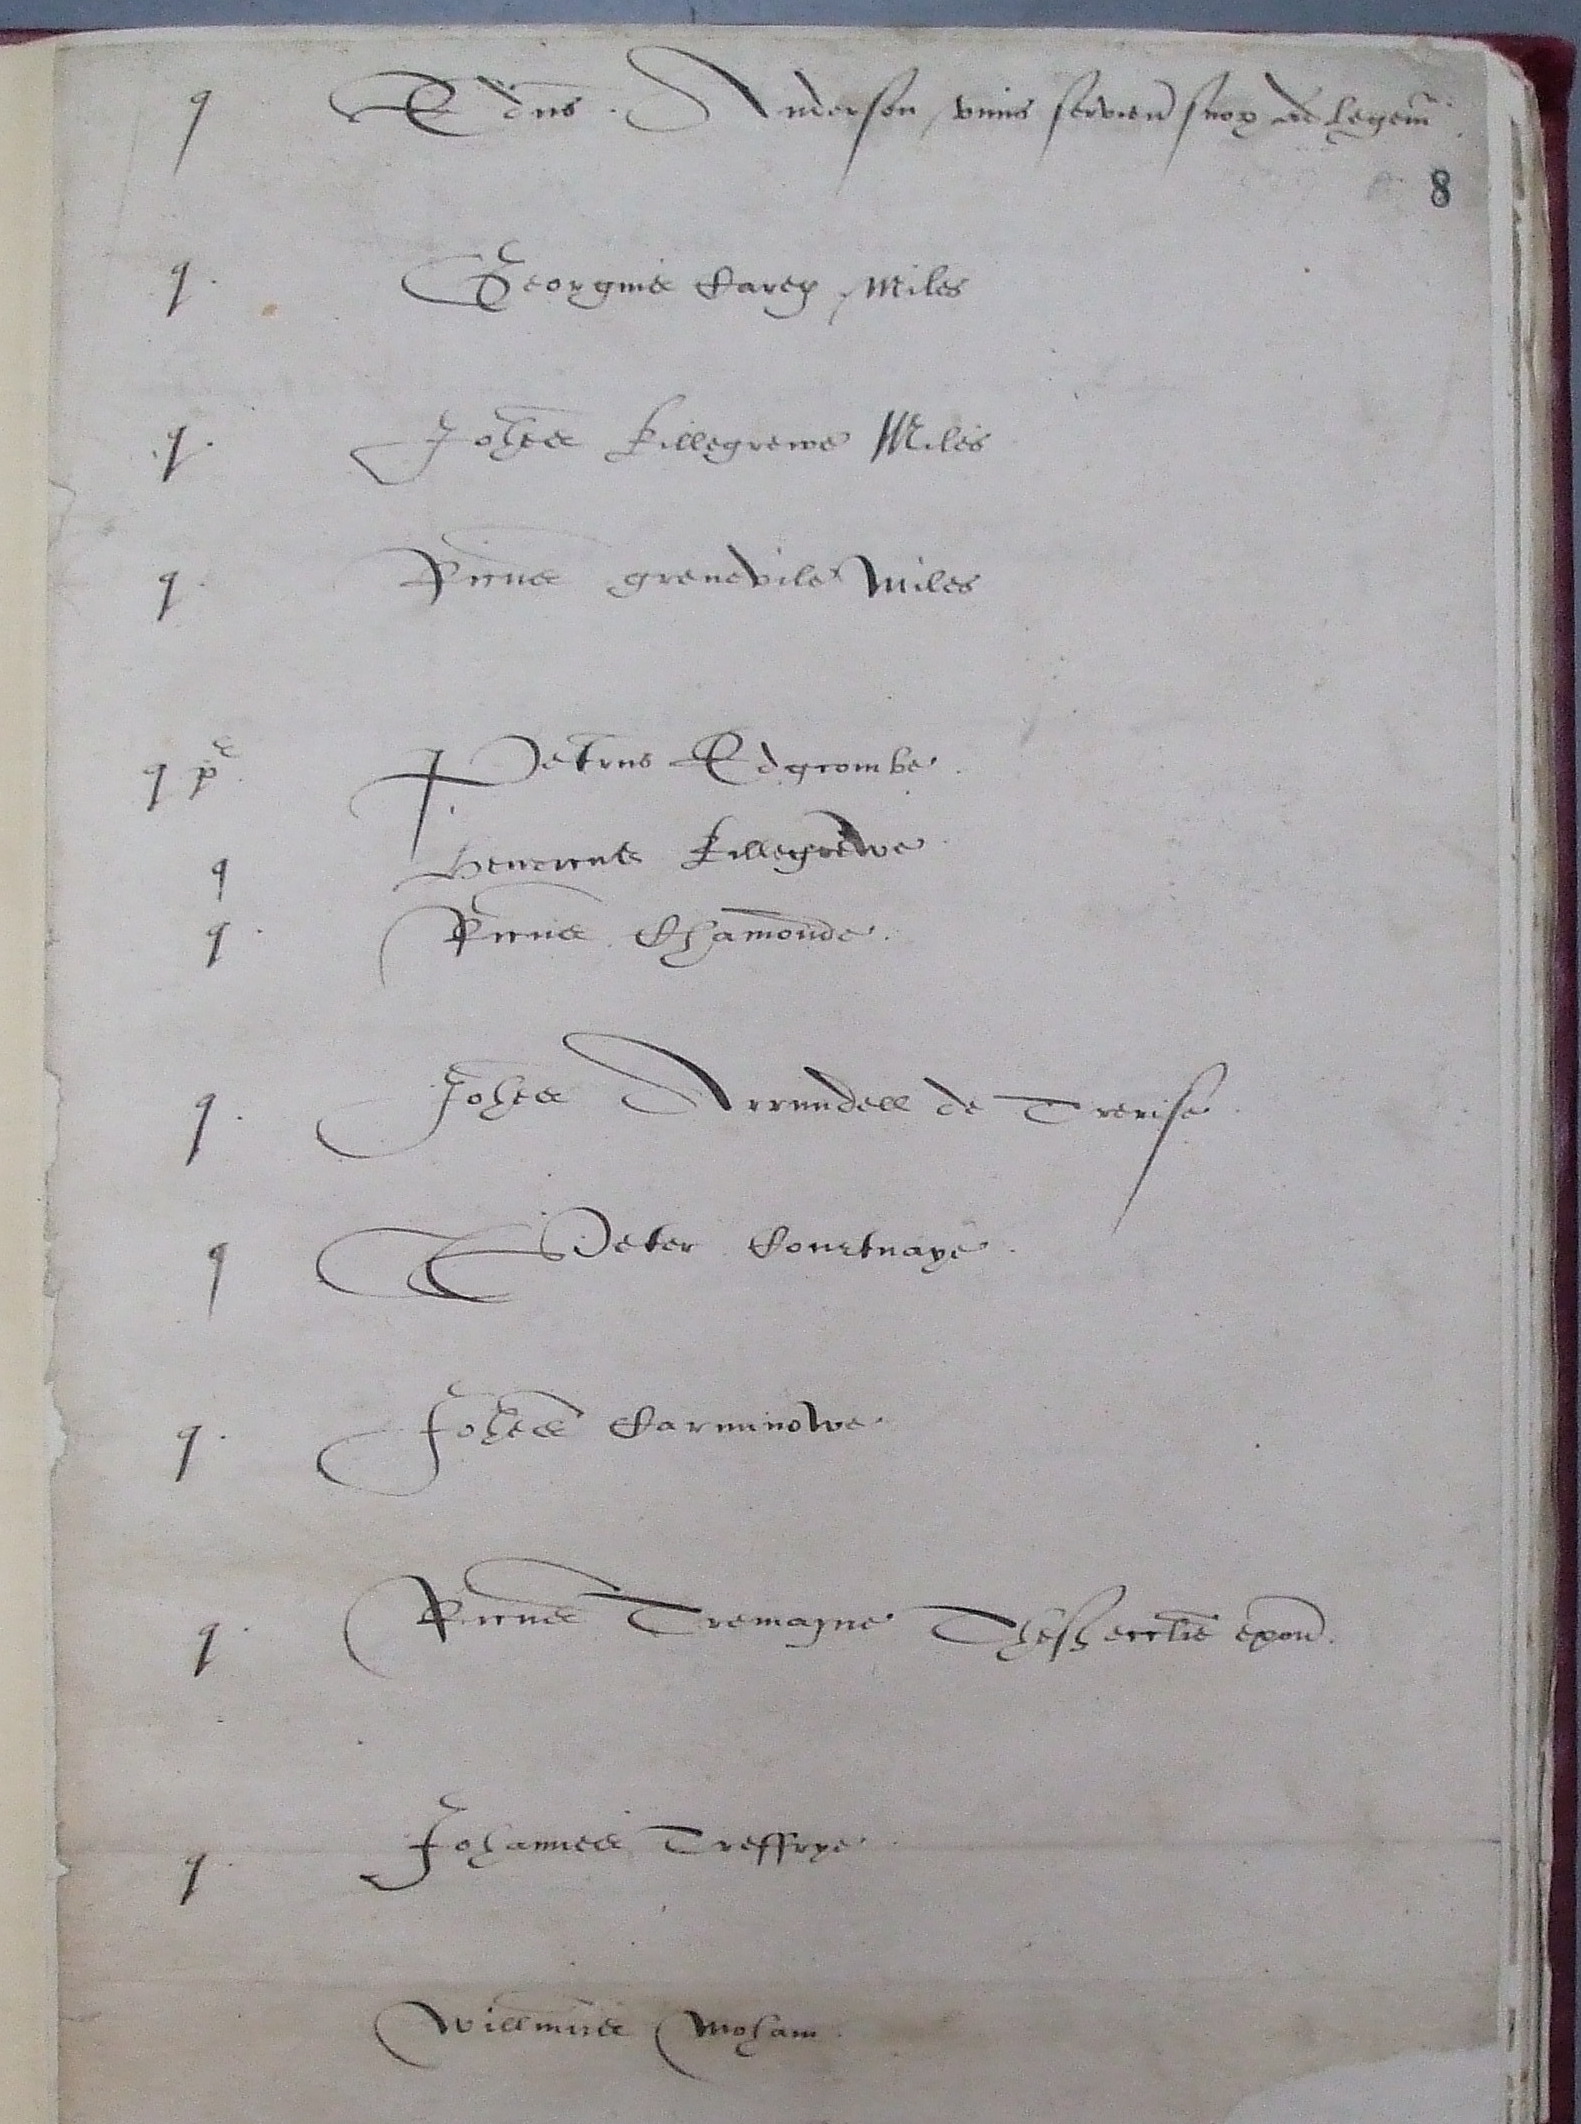 q Edus Anderson vnus servien suor ad legem
8
q Georgius Carey Miles
q Johes Killegrewe Miles
q Ricus Grenevile Miles
q p Petrus Edgcombe
q Henricus Killegrewe
q Ricus Chamonde
q Johes Arrundell de Trerise
q Peter Courtnaye
q Johes Carminowe
q Ricus Tremayne Thes ecclie exon
q Johannes Treffrye
Willmus Moham